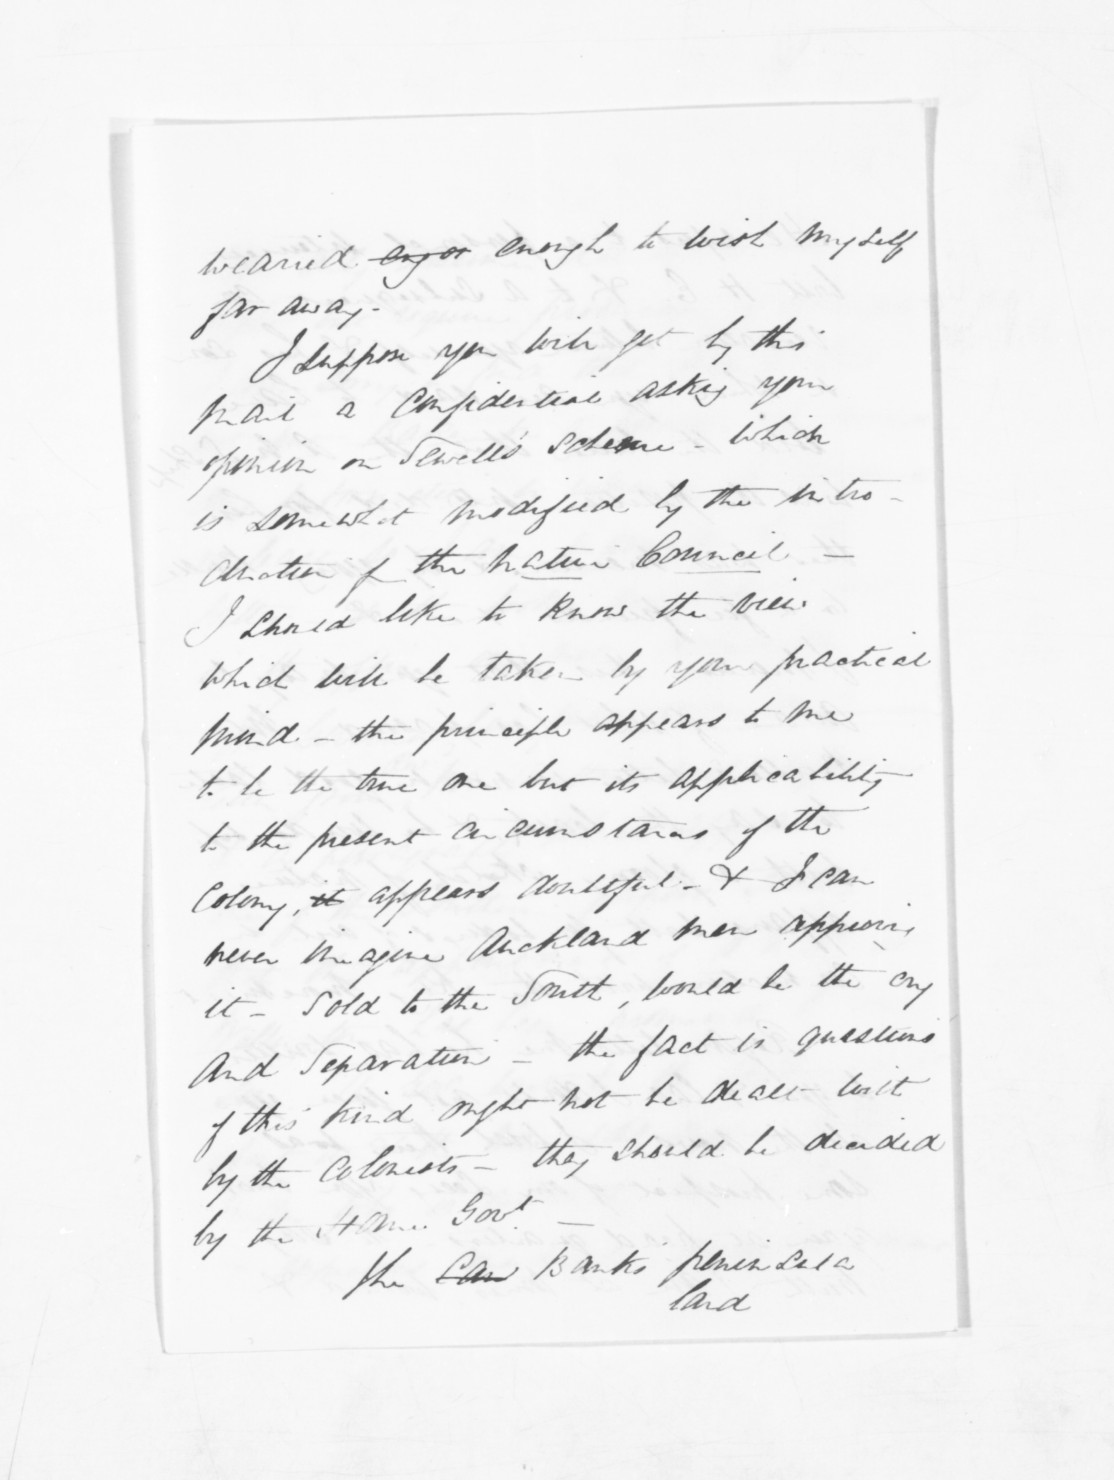 wearied enough to wish myself
far away -
I suppose you will get by this
mail a Confidential asking your
opinion on Sewell's scheme - which
is somewhat modified by the intro-
duction of the Native Council -
I should like to know the view
which will be taken by your practical
mind - the principle appears to me
to be the true one but its applicability
to the present circumstances of the
Colony, it appears doubtful - & I can
never imagine Auckland men approving
it - Sold to the South, would be the cry
and Separation - the fact is questions
of this kind ought not to be dealt with
by the Colonists - they should be decided
by the Home Govt. -
The Law Banks peninsula
land